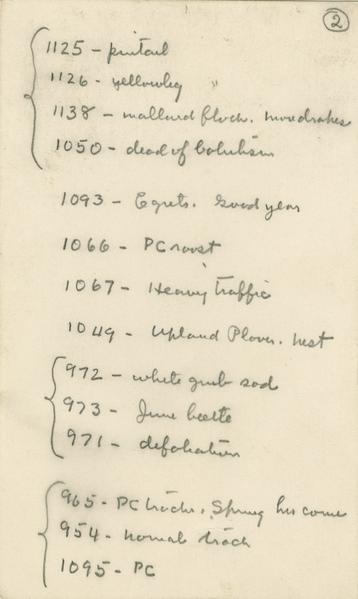 2
1125 - pintail
1126 - yellowleg "
1138 - mallard flock. more drakes
1050 - dead of botulism
1093 - Egrets. Good year
1066 - PC roost
1067 - Heavy traffic
1049 - Upland Plover. nest
972 - white grub sod
973 - June beetle
971 - defoliation
965 - PC tracks. Spring has come
954 - normal track
1095 - PC